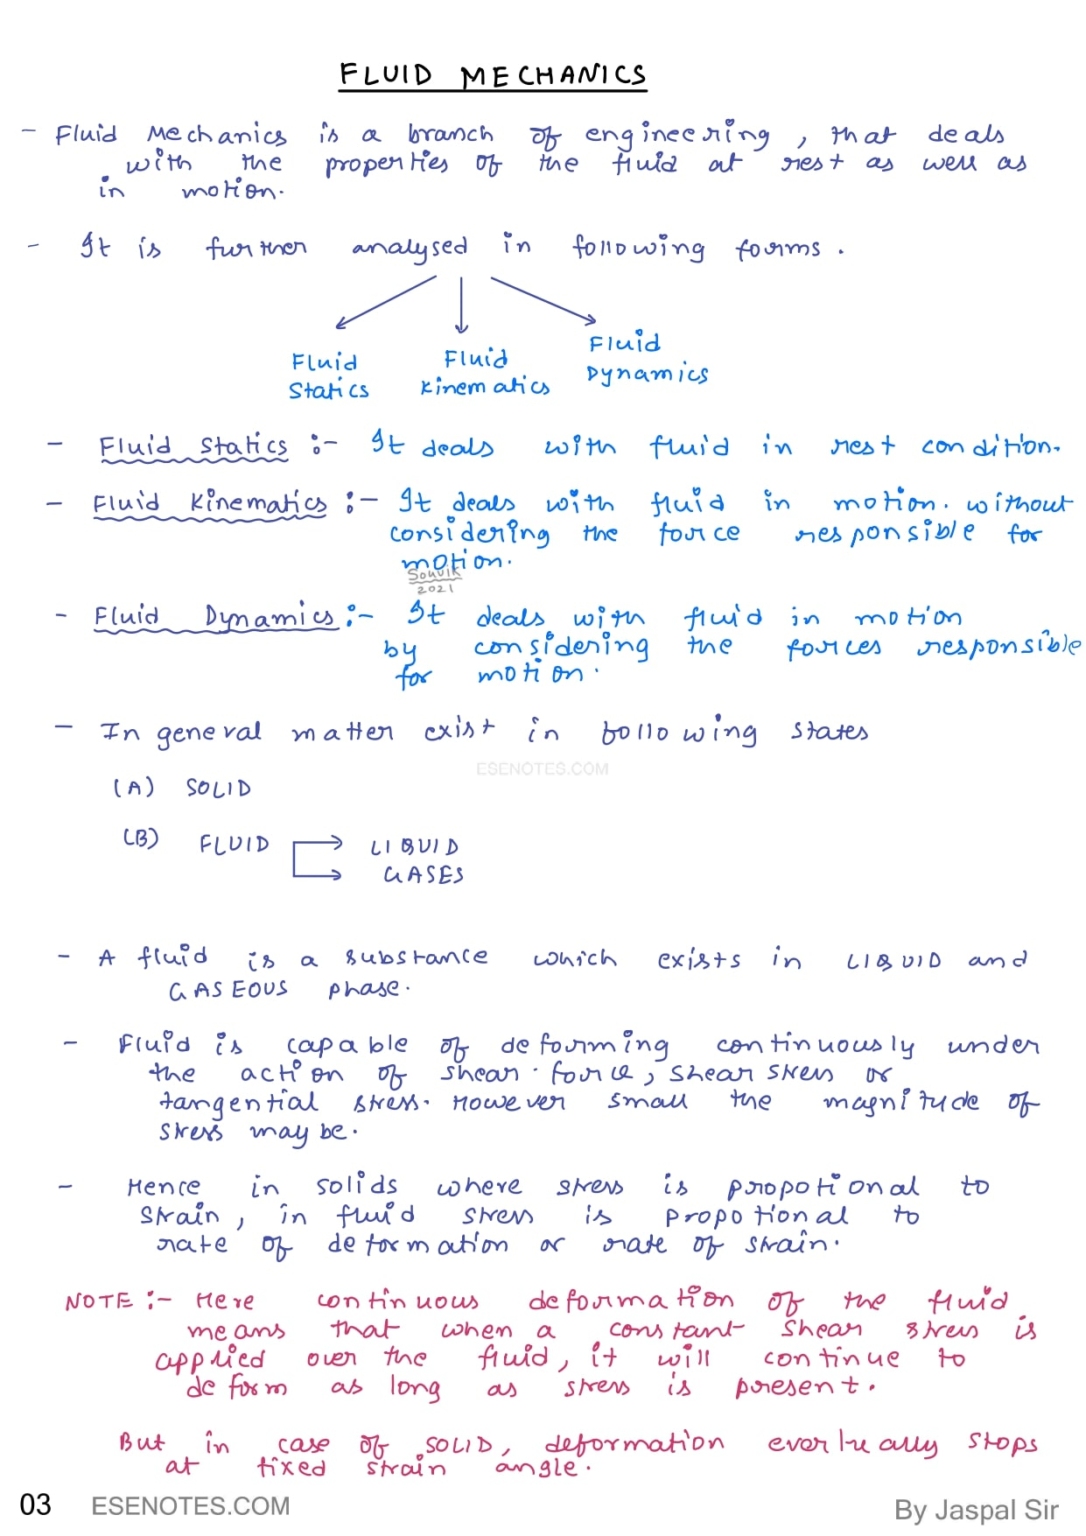 FLUID MECHANICS
- Fluid Mechanics is a branch of engineering, that deals
with the properties of the fluid at rest as well as
in motion.
- It is further analysed in following forms.
Fluid Statics
Fluid Kinematics
Fluid Dynamics
- Fluid Statics :- It deals with fluid in rest condition.
- Fluid Kinematics :- It deals with fluid in motion. without
considering the force responsible for
motion.
Souvik
2021
- Fluid Dynamics :- It deals with fluid in motion
by considering the forces responsible
for motion.
- In general matter exist in following states
ESENOTES.COM
(A) SOLID
(B) FLUID → LIQUID
→ GASES
- A fluid is a substance which exists in LIQUID and
GASEOUS phase.
- Fluid is capable of deforming continuously under
the action of shear. force, shear stress or
tangential stress. However small the magnitude of
stress may be.
- Hence in solids where stress is propotional to
strain, in fluid stress is propotional to
rate of deformation or rate of strain.
NOTE :- Here continuous deformation of the fluid
means that when a constant shear stress is
applied over the fluid, it will continue to
deform as long as stress is present.
But in case of SOLID, deformation stops
at fixed strain angle.
03 ESENOTES.COM By Jaspal Sir